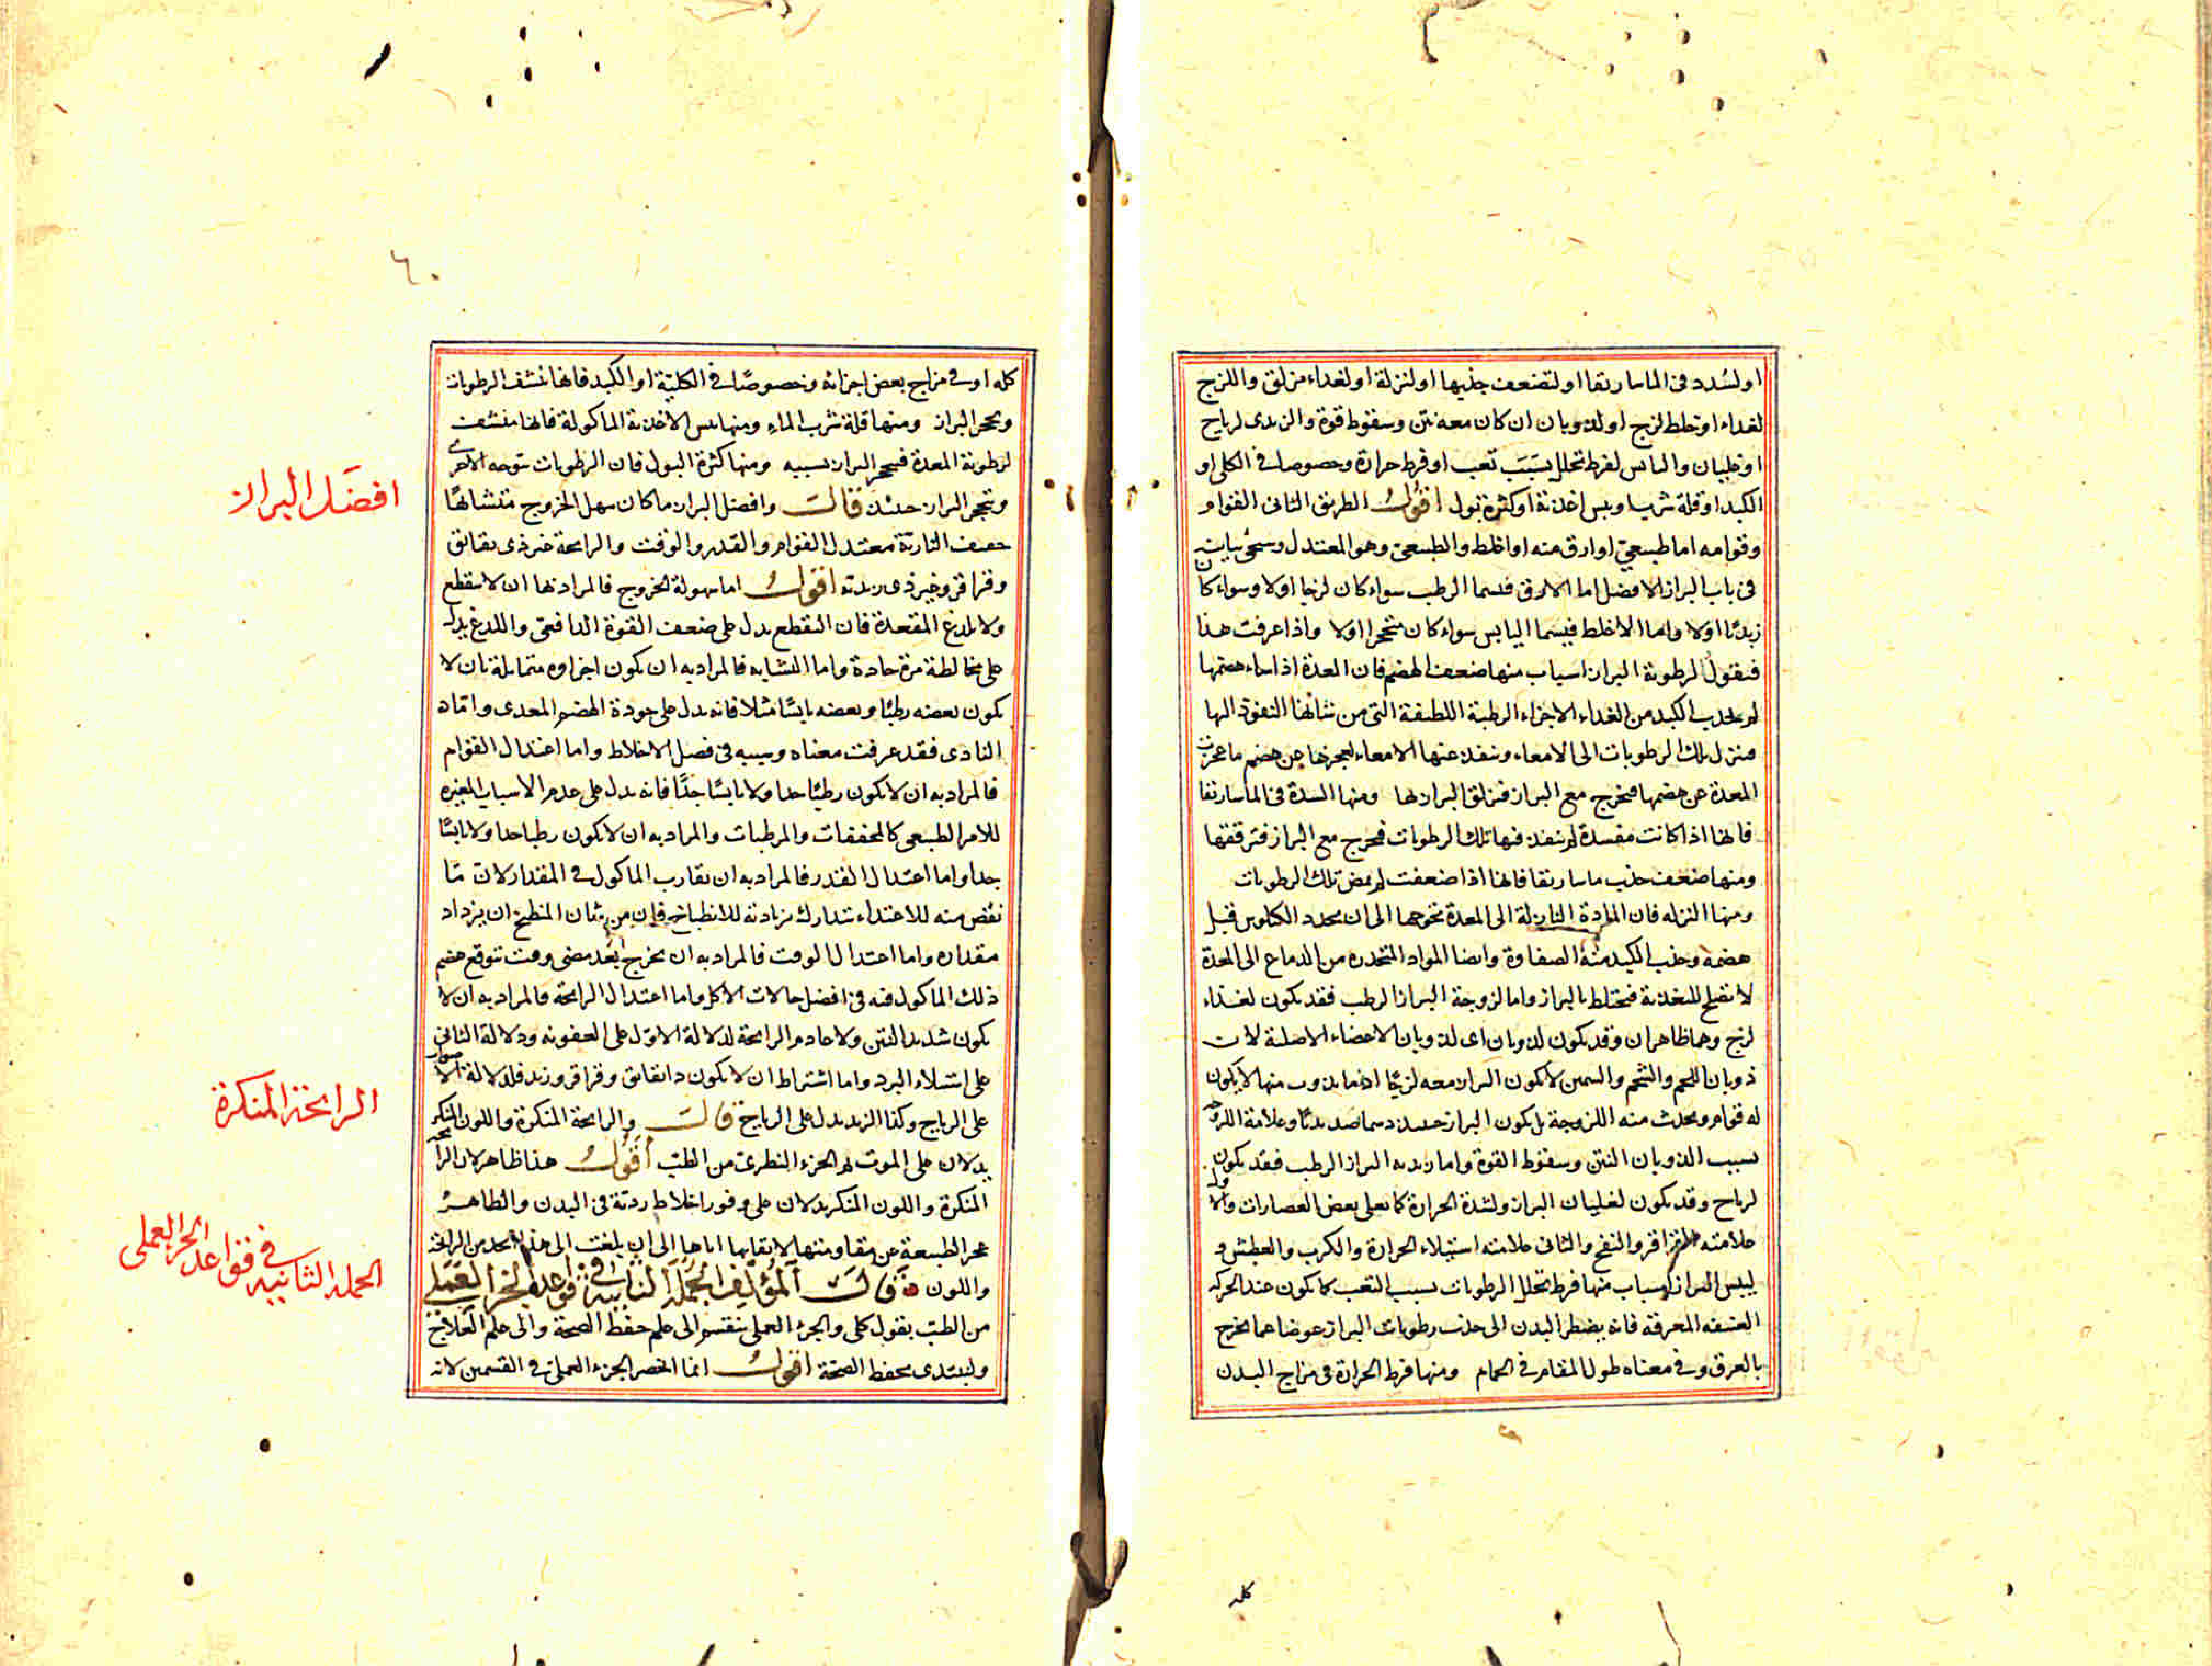 او لسدد فى الماساريقا او لضعف جذبها او لنزلة او لغذاء مزلق واللزج
لغذاء او خلط لزج او لذوبان ان كان معه نتن وسقوط قوة والزبدى لرياح
او غليان واليابس لفرط تحلل بسبب تعب او فرط حرارة وخصوصا فى الكلى او
الكبد او قلة شرب او يبس اغذية او كثرة بول اقول الطريق الثانى القوام
وقوامه اما طبيعى او ارق منه او اغلظ والطبيعى وهو المعتدل وسيجئ بيانه
فى باب البراز الافضل اما الارق فيسما الرطب سواء كان لزجا اولا وسواء كان
زبديا اولا واما الاغلظ فيسما اليابس سواء كان متحجرا اولا واذا عرفت هذا
فنقول لرطوبة البراز اسباب منها ضعف الهضم فان المعدة اذا اساء هضمها
لم يجذب الكبد من الغذاء الاجزاء الرطبة اللطيفة التى من شانها النفوذ اليها
فنزل تلك الرطوبات الى الامعاء وتنفذ عنها الامعاء لعجزها عن هضم ما عجزت
المعدة عن هضمها فتخرج مع البراز فيزلق البراز لها ومنها السدة فى الماساريقا
فانها اذا كانت منسدة لم ينفذ فيها تلك الرطوبات فيخرج مع البراز فترققها
ومنها ضعف جذب ماساريقا فانها اذا ضعفت لم يمص تلك الرطوبات
ومنها النزله فان المادة النازلة الى المعدة تحوجها الى ان يحدر الكيلوس قبل
هضمه وجذب الكبد منه الصفاوة وايضا المواد المتحدره من الدماغ الى المعدة
لا تصلح للتغذية فيختلط بالبراز واما لزوجة البراز الرطب فقد يكون لغذاء
لزج وهما ظاهران وقد يكون لذوبان اى لذوبان الاعضاء الاصلية لان
ذوبان اللحم والشحم والسمين لا يكون البراز معه لزجا اذ ما يذوب منها لا يكون
له قوام ويحدث منه اللزوجة بل يكون البراز حينئذ دسما صديديا وعلامة اللزوجة
بسبب الذوبان النتن وسقوط القوة واما زبدية البراز الرطب فقد يكون
لرياح وقد يكون لغليان البراز ولشدة الحرارة كما يعلى بعض العصارات والاول
علامته القراقر والنفخ والثانى علامته استيلاء الحرارة والكرب والعطش و
ليبس البراز اسباب منها فرط تحلل الرطوبات بسبب التعب كما يكون عند الحركة
العنيفه المعرقه فانه يضطر البدن الى جذب رطوبات البراز عوضا عما يخرج
بالعرق وفى معناه طول المقام فى الحمام ومنها فرط الحرارة فى مزاج البدن
كله
٦٠
كله او فى مزاج بعض اجزائه وخصوصا فى الكلية او الكبد فانها تنشف الرطوبات
ويحجر البراز ومنها قلة شرب الماء ومنها يبس الاغذية الماكولة فانها منشف
لرطوبة المعدة فيحجر البراز بسببه ومنها كثرة البول فان الرطوبات تتوجه الاخرى
ويتحجر البراز حينئذ قال وافضل البراز ما كان سهل الخروج متشابها
خفيف النارية معتدل القوام والقدر والوقت والرايحة غير ذى بقابق
وقراقر وغير ذى زبديه اقول اما سهولة الخروج فالمراد بها ان لا يتقطع
ولا يلدغ المقعدة فان التقطع يدل على ضعف القوة الدافعة واللدغ يدل
على مخالطة مرة حادة واما التشابه فالمراد به ان يكون اجزاوه متماثلة بان لا
يكون بعضه رطبا وبعضه يابسا مثلا فانه يدل على جودة الهضم المعدى واما
النارى فقد عرفت معناه وسببه فى فصل الاخلاط واما اعتدال القوام
فالمراد به ان لا يكون رطبا جدا ولا يابسا جدا فانه يدل على عدم الاسباب المغيره
للامر الطبيعى كالمجففات والمرطبات والمراد به ان لا يكون رطبا جدا ولا يابسا
جدا واما اعتدال القدر فالمراد به ان يقارب الماكول فى المقدار لان ما
نقص منه للاغتذاء يتدارك بزيادته للانطباخ فان من شان المنطبخ ان يزداد
مقداره واما اعتدال الوقت فالمراد به ان يخرج بعد مضى وقت يتوقع هضم
ذلك الماكول فيه فى افضل حالات الاكل واما اعتدال الرايحة فالمراد به ان لا
يكون شديد النتن ولا عادم الرايحة لدلالة الاول على العفونه ودلالة الثانى
على استيلاء البرد واما اشتراط ان لا يكون ذا بقابق وقراقر وزبد فلدلالة الاصوات
على الرياح وكذا الزبد يدل على الرياح قال والرايحة المنكرة واللون المنكر
يدلان على الموت تم الجزء النظرى من الطب اقول هذا ظاهر لان الرايحة
المنكرة واللون المنكر يدلان على وفور اخلاط رديّة فى البدن والظاهر
عجز الطبيعة عن مقاومتها لابقائها اياها الى ان بلغت الى هذا الحد من الرايحة
واللون قال المؤلف الجملة الثانية فى قواعد الجزء العملى
من الطب بقول كلى والجزء العملى ينقسم الى علم حفظ الصحة والى علم العلاج
ولنبتدى بحفظ الصحة اقول انما انحصر الجزء العملى فى القسمين لانه
افضل البراز
الرايحة المنكرة
الجملة الثانية فى قواعد الجزء العملى